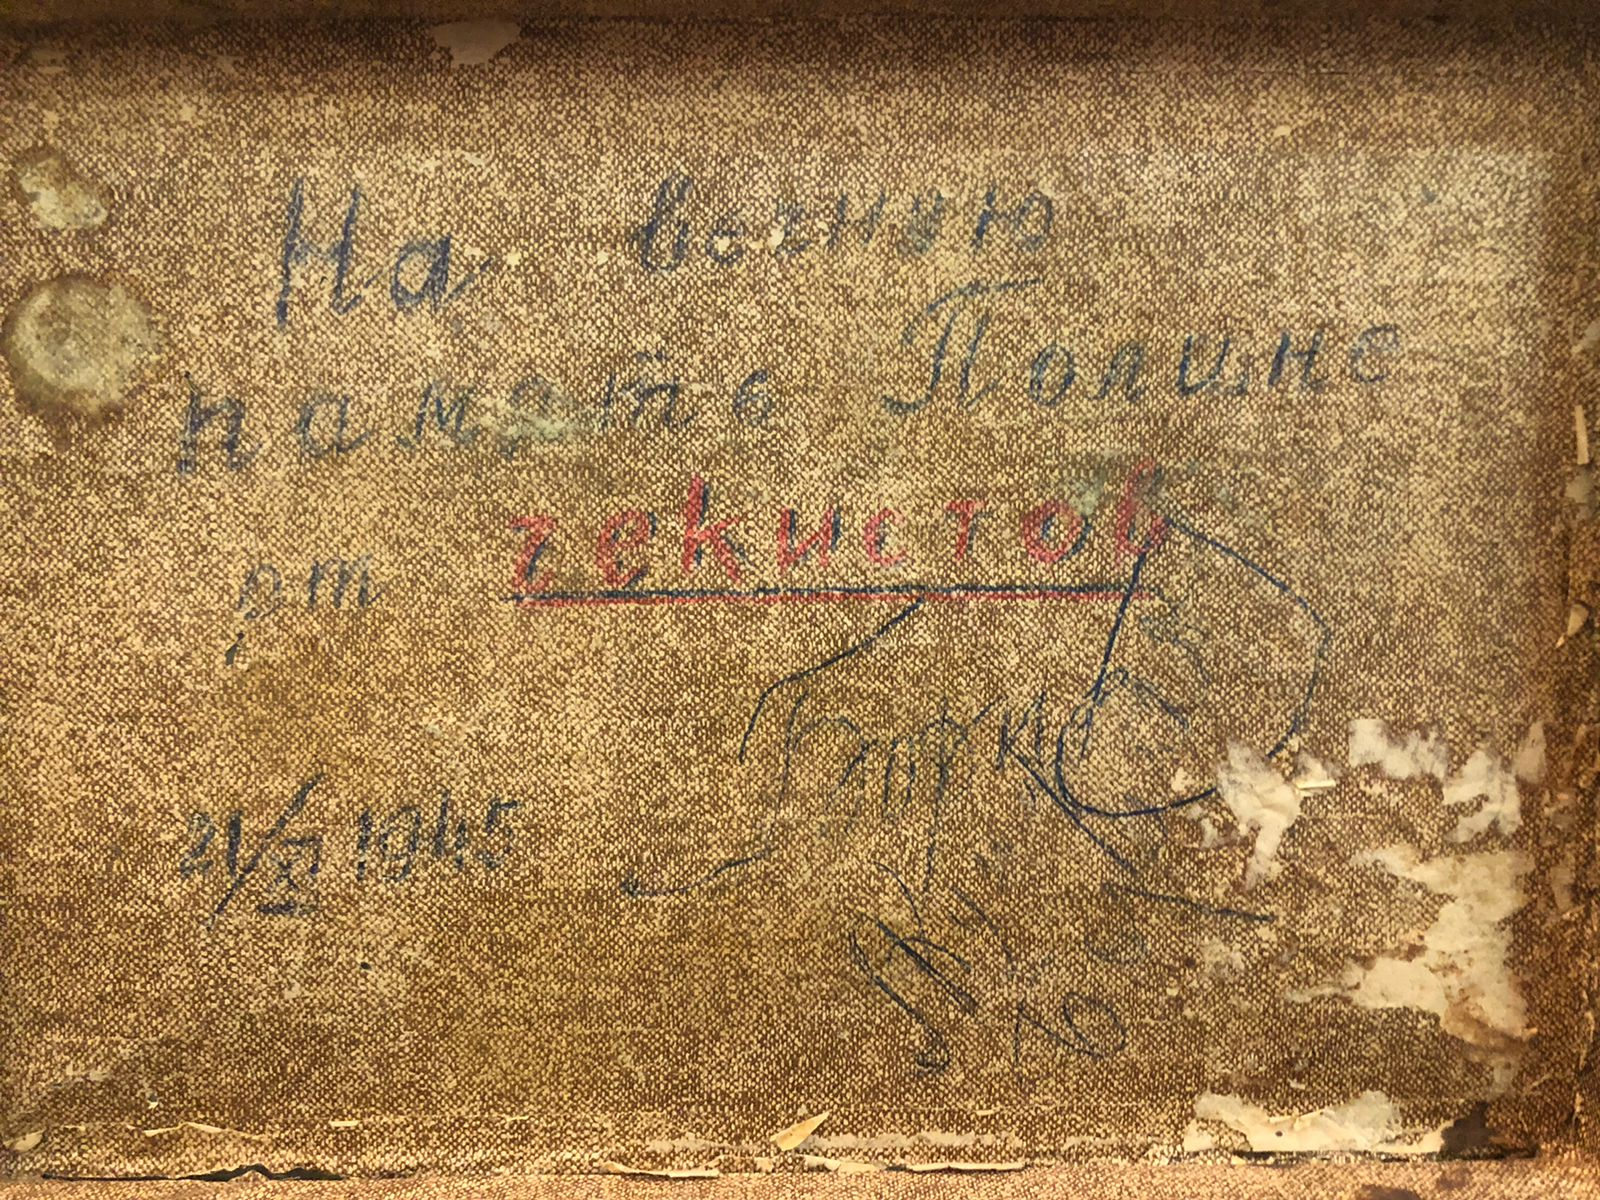 На вечную
память Полине
от чекистов
21/XI 1945